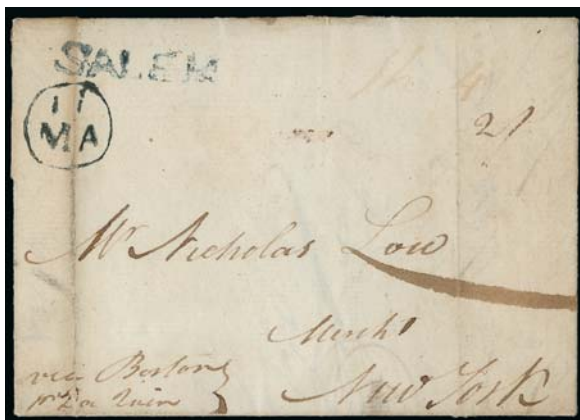 SALEM
17
MA
21
Mr Nicholas Low
Mercht
New York
via Boston